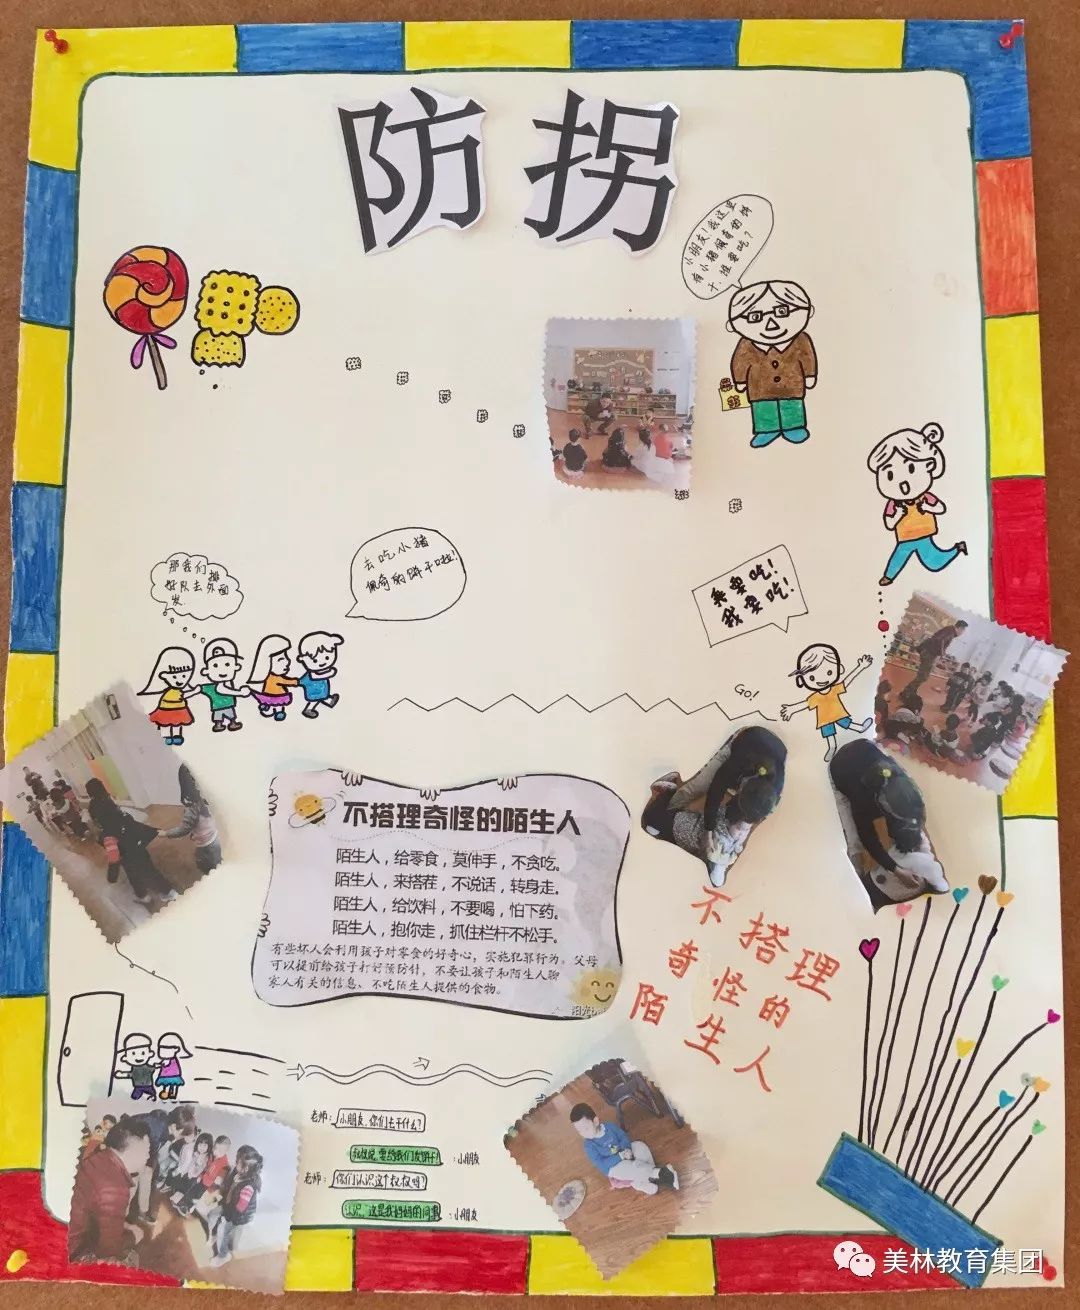 防拐
小朋友!我这里
有小猪佩奇的饼
干,谁要吃?
去吃小猪
佩奇的饼干啦!
那我们排
好队去外面
发.
我要吃!
我要吃!
GO!
不搭理奇怪的陌生人
陌生人，给零食，莫伸手，不贪吃。
陌生人，来搭茬，不说话，转身走。
陌生人，给饮料，不要喝，怕下药。
陌生人，抱你走，抓住栏杆不松手。
有些坏人会利用孩子对零食的好奇心，实施犯罪行为。父母
可以提前给孩子打好预防针，不要让孩子和陌生人聊
家人有关的信息、不吃陌生人提供的食物。
不搭理
奇怪的
陌生人
老师：小朋友，你们去干什么？
叔叔说，要给我们发饼干！：小朋友
老师：你们认识这个叔叔吗？
认识，这是我妈妈的同事：小朋友
美林教育集团